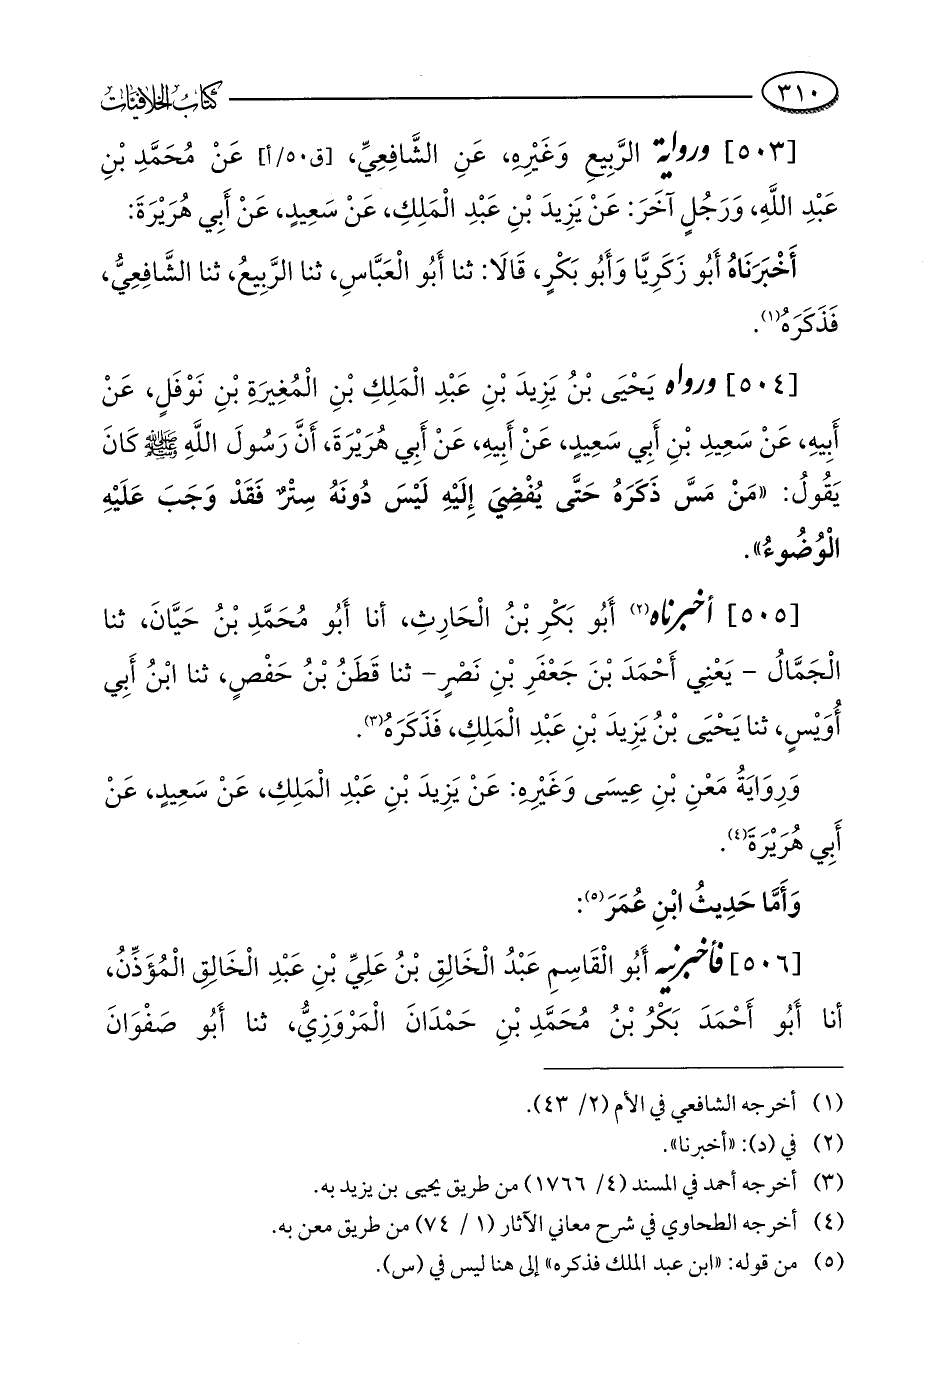 ٣١٠ كتاب الخلافيات
[٥٠٣] ورواية الرَّبِيعِ وَغَيْرِهِ، عَنِ الشَّافِعِيِّ، [ق٥٠/أ] عَنْ مُحَمَّدِ بْنِ
عَبْدِ اللَّهِ، وَرَجُلٍ آخَرَ: عَنْ يَزِيدَ بْنِ عَبْدِ الْمَلِكِ، عَنْ سَعِيدٍ، عَنْ أَبِي هُرَيْرَةَ:
أَخْبَرَنَاهُ أَبُو زَكَرِيَّا وَأَبُو بَكْرٍ، قَالَا: ثنا أَبُو الْعَبَّاسِ، ثنا الرَّبِيعُ، ثنا الشَّافِعِيُّ،
فَذَكَرَهُ(١).
[٥٠٤] ورواه يَحْيَى بْنُ يَزِيدَ بْنِ عَبْدِ الْمَلِكِ بْنِ الْمُغِيرَةِ بْنِ نَوْفَلٍ، عَنْ
أَبِيهِ، عَنْ سَعِيدِ بْنِ أَبِي سَعِيدٍ، عَنْ أَبِيهِ، عَنْ أَبِي هُرَيْرَةَ، أَنَّ رَسُولَ اللَّهِ ﷺ كَانَ
يَقُولُ: «مَنْ مَسَّ ذَكَرَهُ حَتَّى يُفْضِيَ إِلَيْهِ لَيْسَ دُونَهُ سِتْرٌ فَقَدْ وَجَبَ عَلَيْهِ
الْوُضُوءُ».
[٥٠٥] أخبرناه(٢) أَبُو بَكْرِ بْنُ الْحَارِثِ، أنا أَبُو مُحَمَّدِ بْنُ حَيَّانَ، ثنا
الْجَمَّالُ - يَعْنِي أَحْمَدَ بْنَ جَعْفَرِ بْنِ نَصْرٍ - ثنا قَطَنُ بْنُ حَفْصٍ، ثنا ابْنُ أَبِي
أُوَيْسٍ، ثنا يَحْيَى بْنُ يَزِيدَ بْنِ عَبْدِ الْمَلِكِ، فَذَكَرَهُ(٣).
وَرِوَايَةُ مَعْنِ بْنِ عِيسَى وَغَيْرِهِ: عَنْ يَزِيدَ بْنِ عَبْدِ الْمَلِكِ، عَنْ سَعِيدٍ، عَنْ
أَبِي هُرَيْرَةَ(٤).
وَأَمَّا حَدِيثُ ابْنِ عُمَرَ(٥):
[٥٠٦] فأخبرنيه أَبُو الْقَاسِمِ عَبْدُ الْخَالِقِ بْنُ عَلِيِّ بْنِ عَبْدِ الْخَالِقِ الْمُؤَذِّنُ،
أنا أَبُو أَحْمَدَ بَكْرُ بْنُ مُحَمَّدِ بْنِ حَمْدَانَ الْمَرْوَزِيُّ، ثنا أَبُو صَفْوَانَ
(١) أخرجه الشافعي في الأم (٢/ ٤٣).
(٢) في (د): «أخبرنا».
(٣) أخرجه أحمد في المسند (٤/ ١٧٦٦) من طريق يحيى بن يزيد به.
(٤) أخرجه الطحاوي في شرح معاني الآثار (١ / ٧٤) من طريق معن به.
(٥) من قوله: «ابن عبد الملك فذكره» إلى هنا ليس في (س).